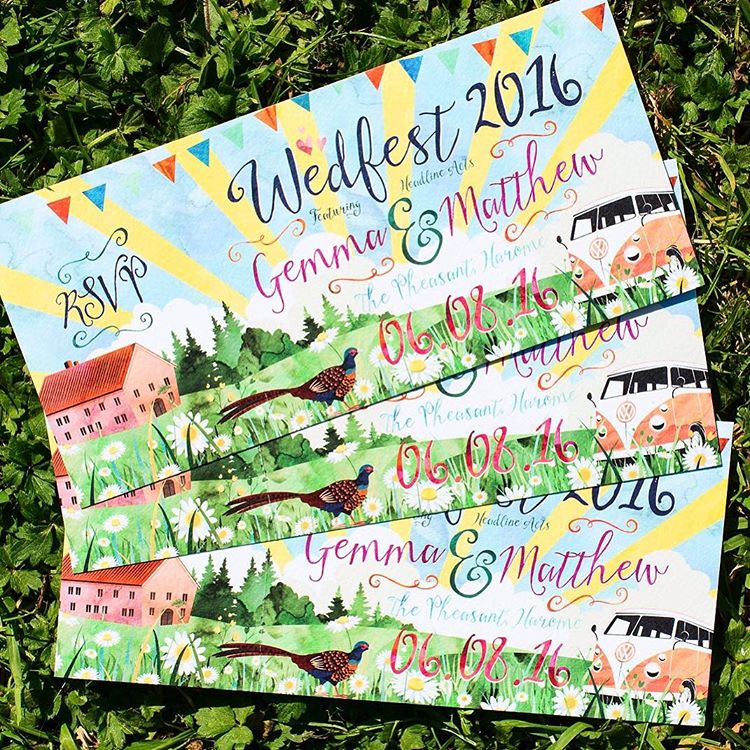 Wedfest 2016
Featuring Headline Acts
Gemma & Matthew
RSVP
The Pheasant, Harome
06.08.16
& Matthew
The Pheasant, Harome
06.08.16
2016
Headline Acts
Gemma & Matthew
The Pheasant, Harome
06.08.16